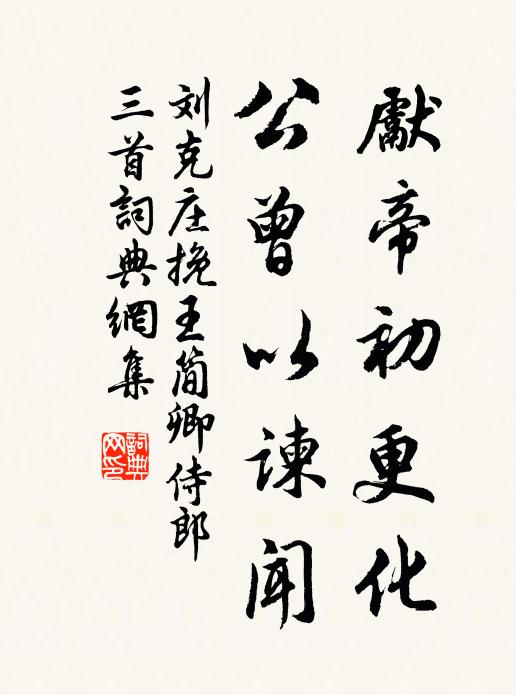 獻帝初更化
公曾以諫聞
刘克庄挽王简卿侍郎
三首詞典網集
詞典網印